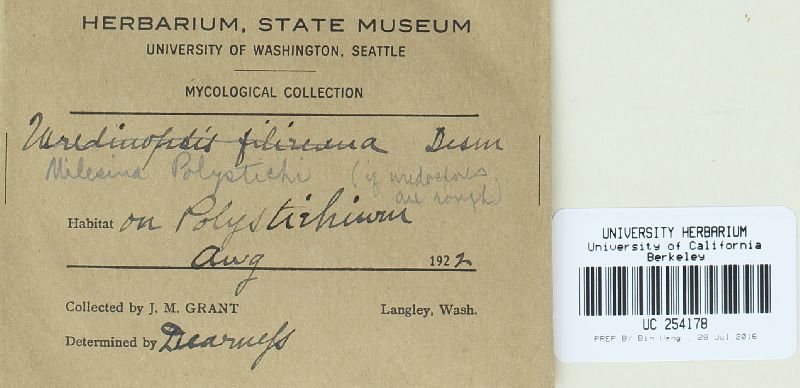 HERBARIUM, STATE MUSEUM
UNIVERSITY OF WASHINGTON, SEATTLE
MYCOLOGICAL COLLECTION
Desm
Milesina Polystichi (if uredospores
are rough)
Habitat on Polystichium
Aug 1922
Collected by J. M. GRANT Langley, Wash.
Determined by Dearness
UNIVERSITY HERBARIUM
University of California
Berkeley
UC 254178
PREP BY Bin Wang , 28 Jul 2016